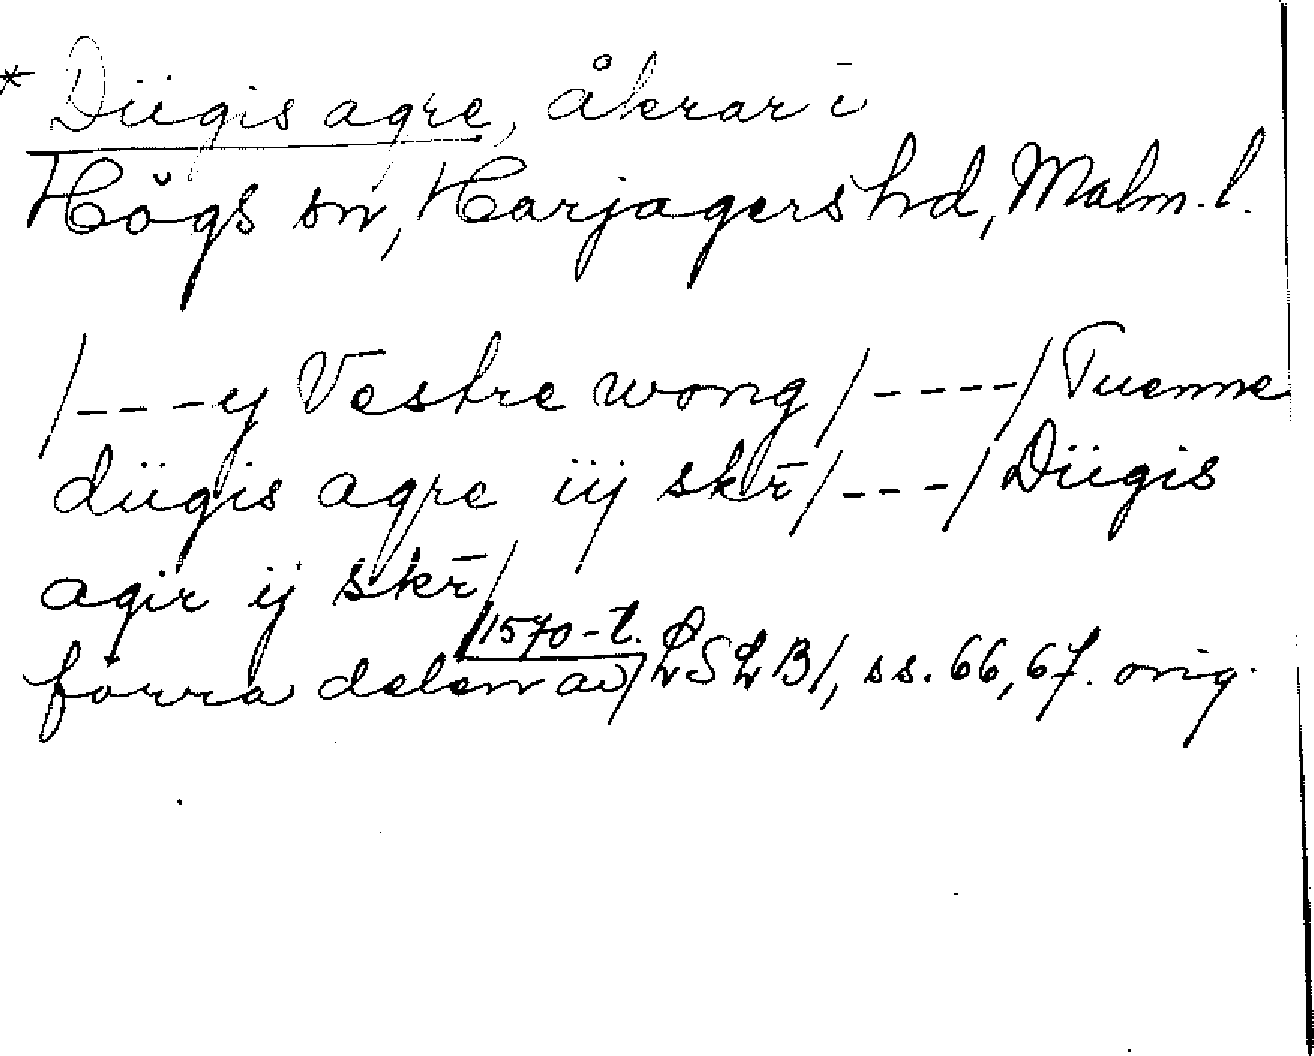 * Dügis agre, åkrar i
Högs sn, Harjagers hd, Malm. l.
/---y Vestre wong /----/ Tuenne
dügis agre iij skr̄/---/ Dügis
agir ij skr̄/
förra delen av /1570-t. LSLB/, ss. 66, 67. orig.